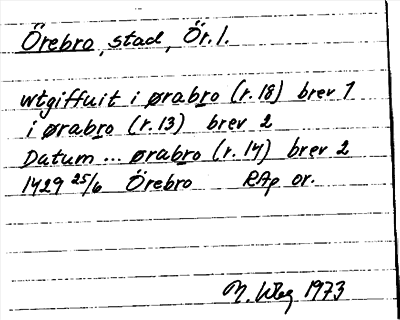 Örebro, stad, Ör. l.
wtgiffuit i ørabro (r. 18) brev 1
i ørabro (r. 13) brev 2
Datum ... ørabro (r. 14) brev 2
1429 25/6 Örebro RAp or.
M. Wbg 1973